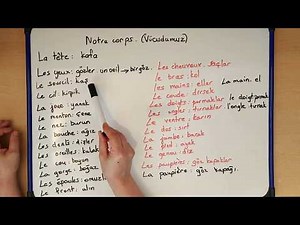 Notre corps. (Vücudumuz)
La tête: kafa
Les yeux: gözler un oeil → bir göz.
Le sourcil: kaş
Le cil: kirpik
La joue: yanak
Le menton: çene
Le nez: burun
La bouche: ağız
Les dents: dişler
Les oreilles: kulak
Le cou: boyun
La gorge: boğaz
Les épaules: omuzlar
Le front: alın
Les cheveux: saçlar
Le bras: kol
Les mains: eller La main. el
Le coude: dirsek
Les doigts: parmaklar
Les ongles: tırnaklar l'ongle: tırnak
Le ventre: karın
Le dos: sırt
La jambe: bacak
Le pied: ayak
Le genou: diz
Les paupières: göz kapaklar
La paupière: göz kapağı.